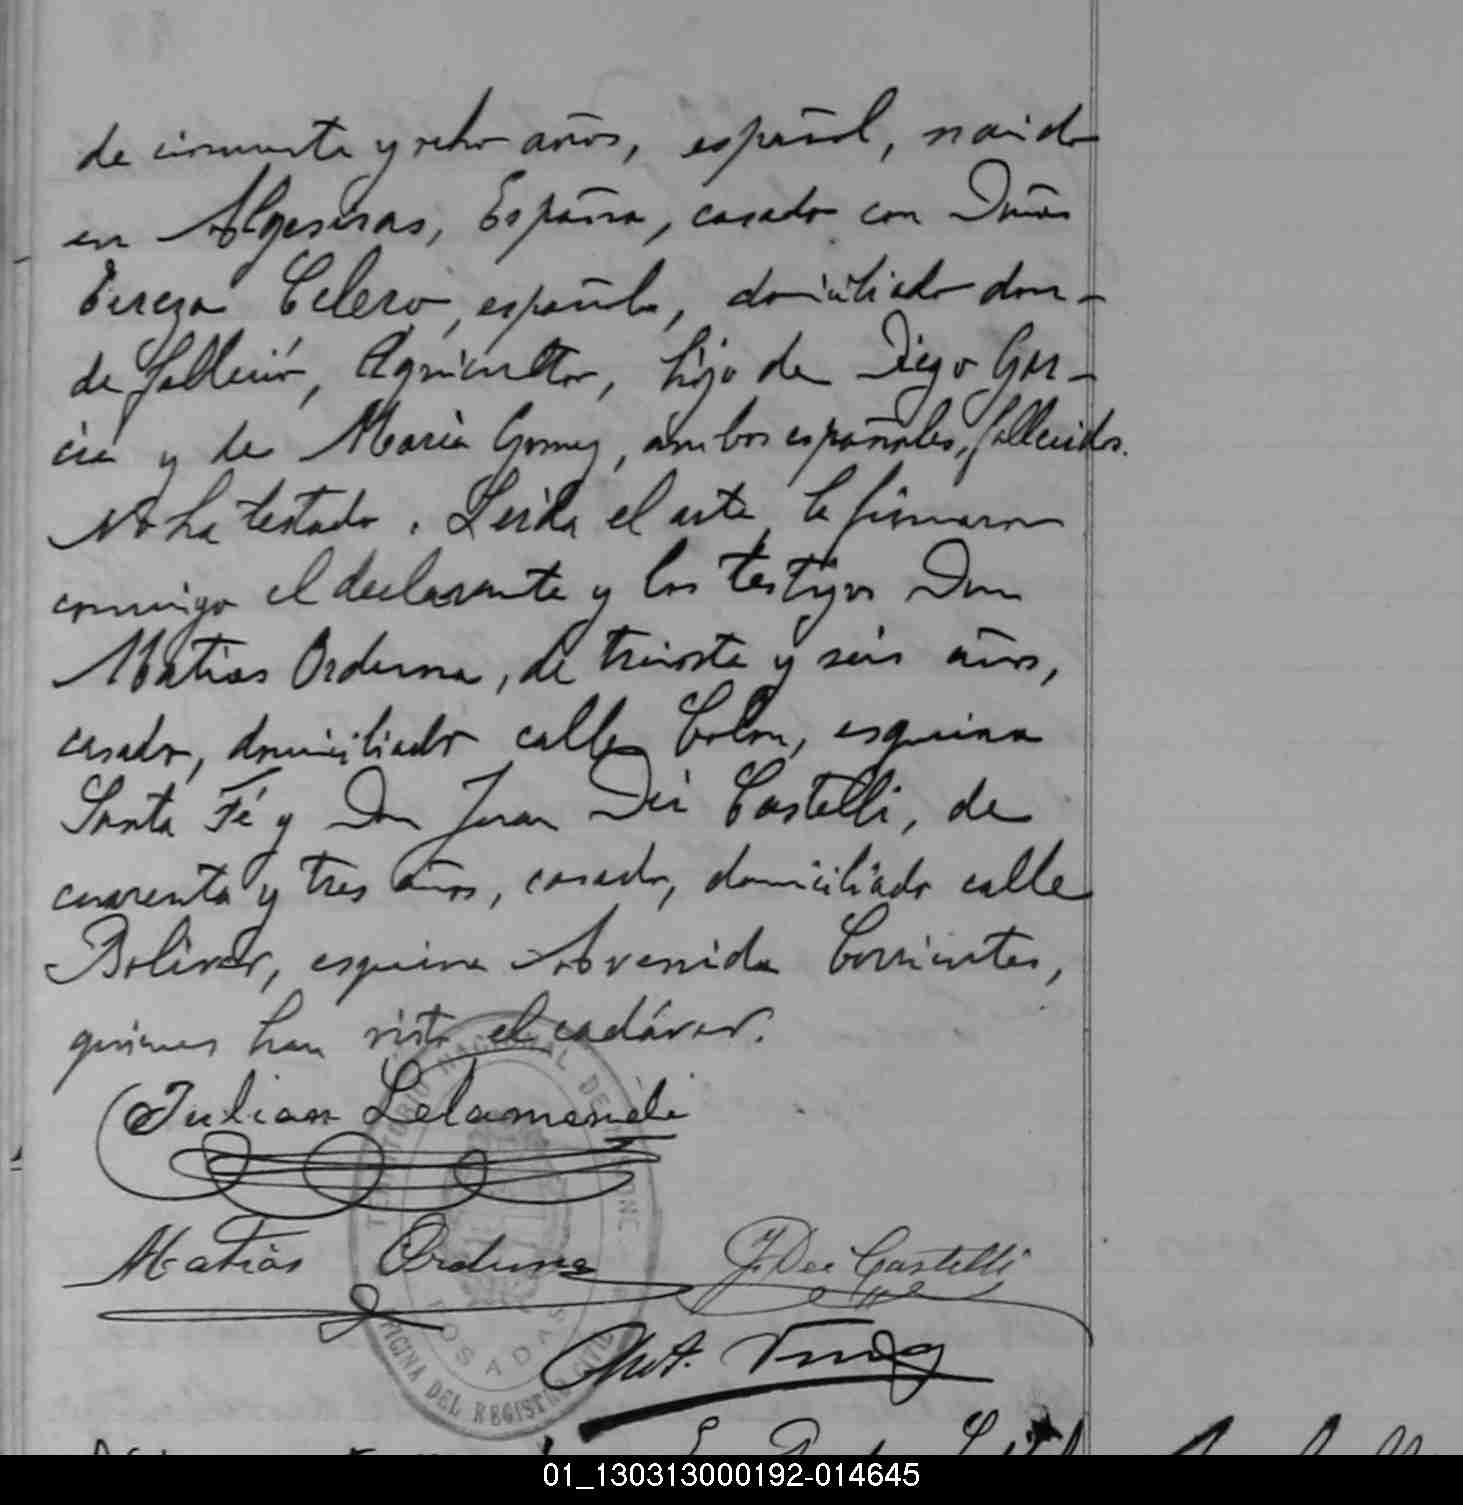 de cincuenta y ocho años, español, nacido
en Algesiras, España, casado con Doña
Tereza Celero, española, domiciliado don-
de falleció, Agricultor, hijo de Diego Gar-
cia y de Maria Gomez, ambos españoles, fallecidos.
No ha testado. Leida el acta, la firmaron
conmigo el declarante y los testigos Don
Matias Orduna, de treinta y seis años,
casado, domiciliado calle Colon, esquina
Santa Fé y Don Juan Dei Castelli, de
cuarenta y tres años, casado, domiciliado calle
Bolivar, esquina Avenida Corrientes,
quienes han visto el cadáver.
Julian Lelamendi
Matias Orduna
J. Dei Castelli
TERRITORIO NACIONAL DE MISIONES
POSADAS
OFICINA DEL REGISTRO CIVIL
01_130313000192-014645